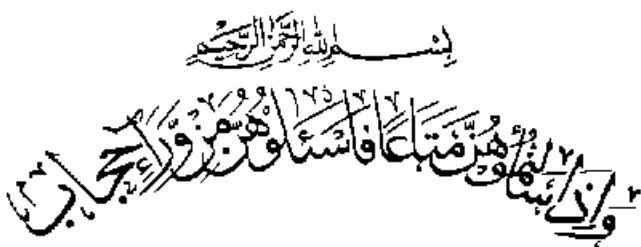 بسم الله الرحمن الرحيم
وَإِذَا سَأَلْتُمُوهُنَّ مَتَاعًا فَاسْئَلُوهُنَّ مِنْ وَرَاءِ حِجَابٍ